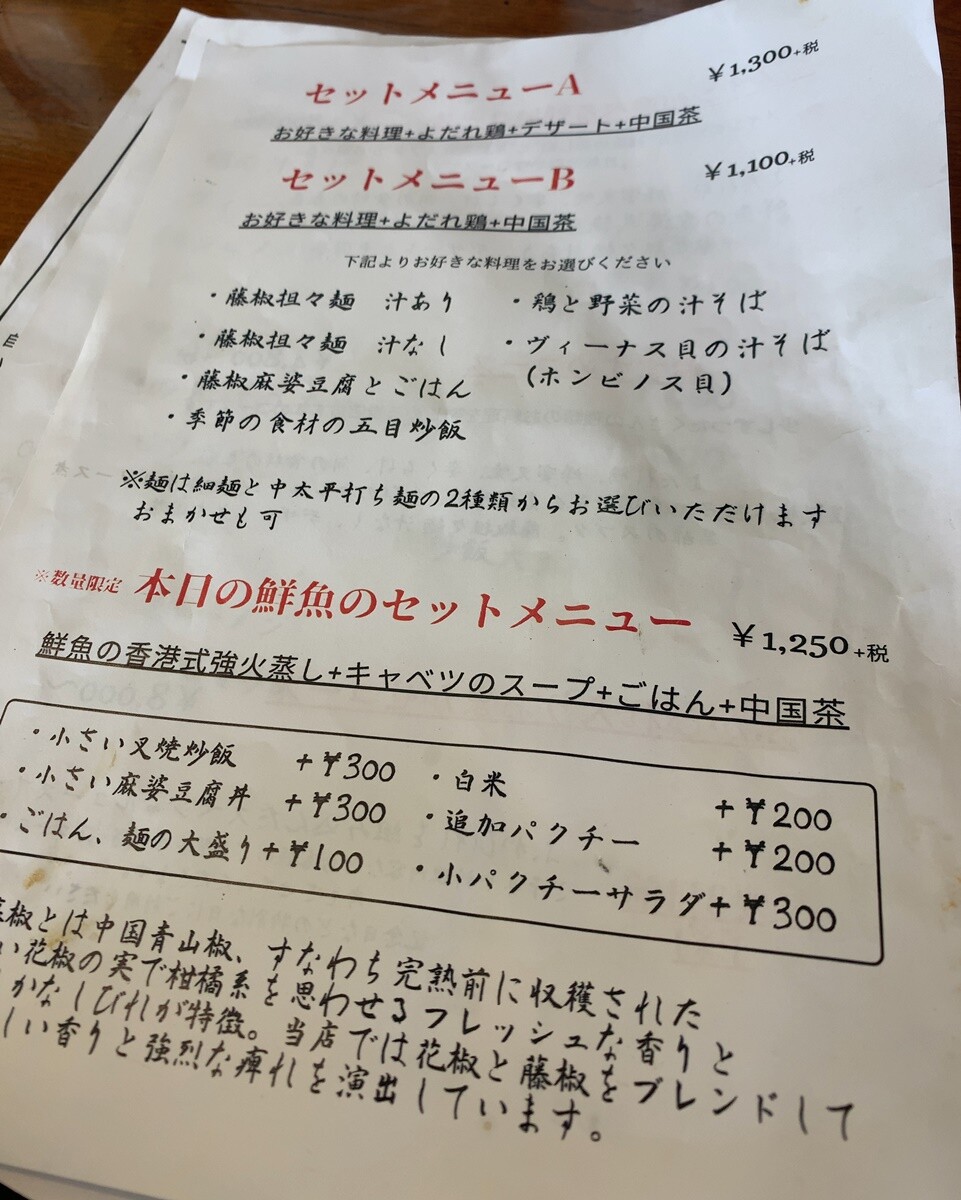 セットメニューA ¥1,300+税
お好きな料理+よだれ鶏+デザート+中国茶
セットメニューB ¥1,100+税
お好きな料理+よだれ鶏+中国茶
下記よりお好きな料理をお選びください
・藤椒担々麺 汁あり ・鶏と野菜の汁そば
・藤椒担々麺 汁なし ・ヴィーナス貝の汁そば
・藤椒麻婆豆腐とごはん (ホンビノス貝)
・季節の食材の五目炒飯
※麺は細麺と中太平打ち麺の2種類からお選びいただけます
おまかせも可
※数量限定 本日の鮮魚のセットメニュー ¥1,250+税
鮮魚の香港式強火蒸し+キャベツのスープ+ごはん+中国茶
・小さい叉焼炒飯 +¥300 ・白米 +¥200
・小さい麻婆豆腐丼 +¥300 ・追加パクチー +¥200
・ごはん、麺の大盛り+¥100 ・小パクチーサラダ+¥300
椒とは中国青山椒、すなわち完熟前に収穫された
い花椒の実で柑橘系を思わせるフレッシュな香りと
かなしびれが特徴。当店では花椒と藤椒をブレンドして
しい香りと強烈な痺れを演出しています。